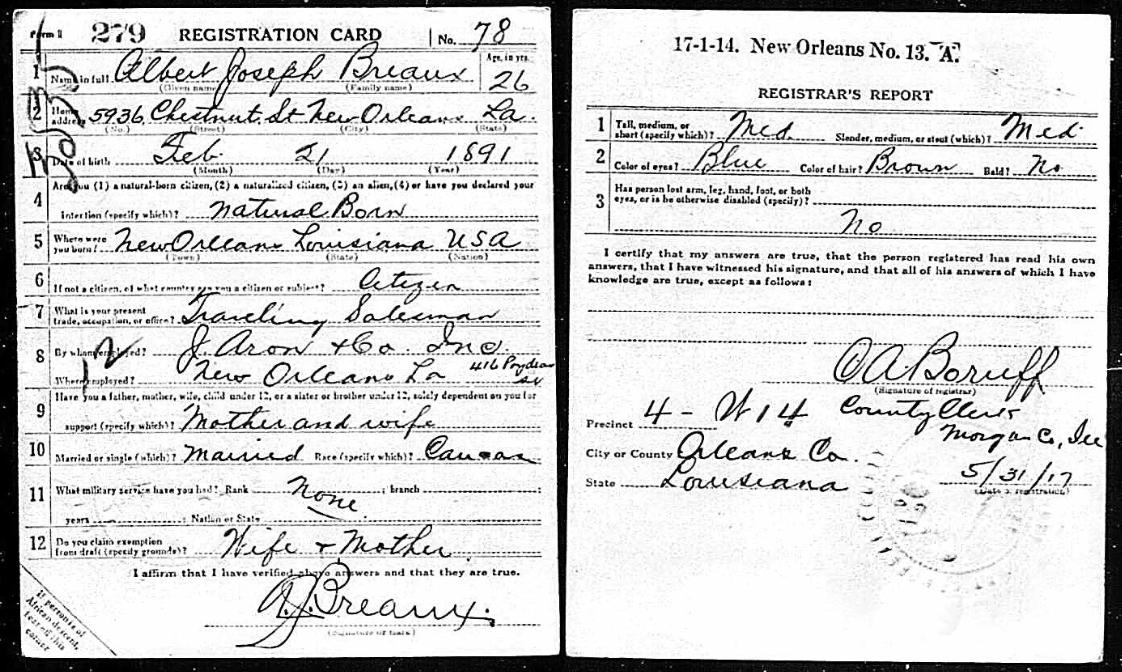 Form 1 279 REGISTRATION CARD No. 78
1 Name in full Albert Joseph Breaux Age, in yrs. 26
(Given name) (Family name)
2 Home address 5936 Chestnut St New Orleans La.
(No.) (Street) (City) (State)
3 Date of birth Feb. 21 1891
(Month) (Day) (Year)
4 Are you (1) a natural-born citizen, (2) a naturalized citizen, (3) an alien, (4) or have you declared your
intention (specify which)? Natural Born
5 Where were you born? New Orleans Louisiana USA
(Town) (State) (Nation)
6 If not a citizen, of what country are you a citizen or subject? Citizen
7 What is your present trade, occupation, or office? Traveling Salesman
8 By whom employed? J. Aron + Co. Inc.
Where employed? New Orleans La 416 Poydras st
9 Have you a father, mother, wife, child under 12, or a sister or brother under 12, solely dependent on you for
support (specify which)? Mother and wife
10 Married or single (which)? Married Race (specify which)? Caucas
11 What military service have you had? Rank None ; branch ;
years ; Nation or State
12 Do you claim exemption from draft (specify grounds)? Wife + Mother
I affirm that I have verified above answers and that they are true.
A. J. Breaux.
(Signature or mark)
If persons of African descent, tear off this corner
17-1-14. New Orleans No. 13. "A".
REGISTRAR'S REPORT
1 Tall, medium, or short (specify which)? Med Slender, medium, or stout (which)? Med.
2 Color of eyes? Blue Color of hair? Brown Bald? No
3 Has person lost arm, leg, hand, foot, or both
eyes, or is he otherwise disabled (specify)?
No
I certify that my answers are true, that the person registered has read his own
answers, that I have witnessed his signature, and that all of his answers of which I have
knowledge are true, except as follows:
C A Boruff
(Signature of registrar)
Precinct 4 - W 14 County Clerk
Morgan Co, Ill
City or County Orleans Co.
State Louisiana 5/31/17
(Date of registration)